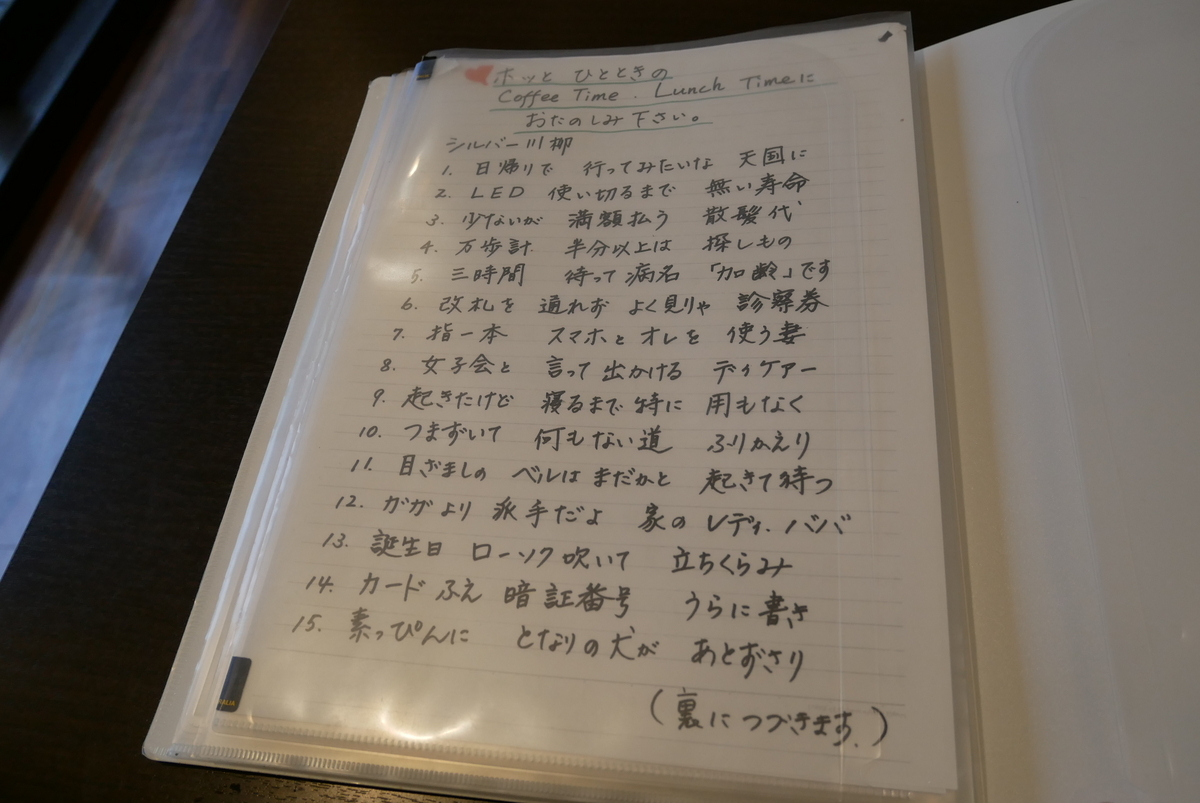 ホッと ひとときの
Coffee Time . Lunch Timeに
おたのしみ下さい。
シルバー川柳
1. 日帰りで 行ってみたいな 天国に
2. LED 使い切るまで 無い寿命
3. 少ないが 満額払う 散髪代
4. 万歩計 半分以上は 探しもの
5. 三時間 待って病名 「加齢」です
6. 改札を 通れず よく見りゃ 診察券
7. 指一本 スマホと オレを 使う妻
8. 女子会と 言って出かける ディケアー
9. 起きたけど 寝るまで特に 用もなく
10. つまずいて 何もない道 ふりかえり
11. 目ざましの ベルは まだかと 起きて待つ
12. ガガより 派手だよ 家の レディ.ババ
13. 誕生日 ローソク吹いて 立ちくらみ
14. カードふえ 暗証番号 うらに書き
15. 素っぴんに となりの犬が あとずさり
(裏につづきます.)
ALIA